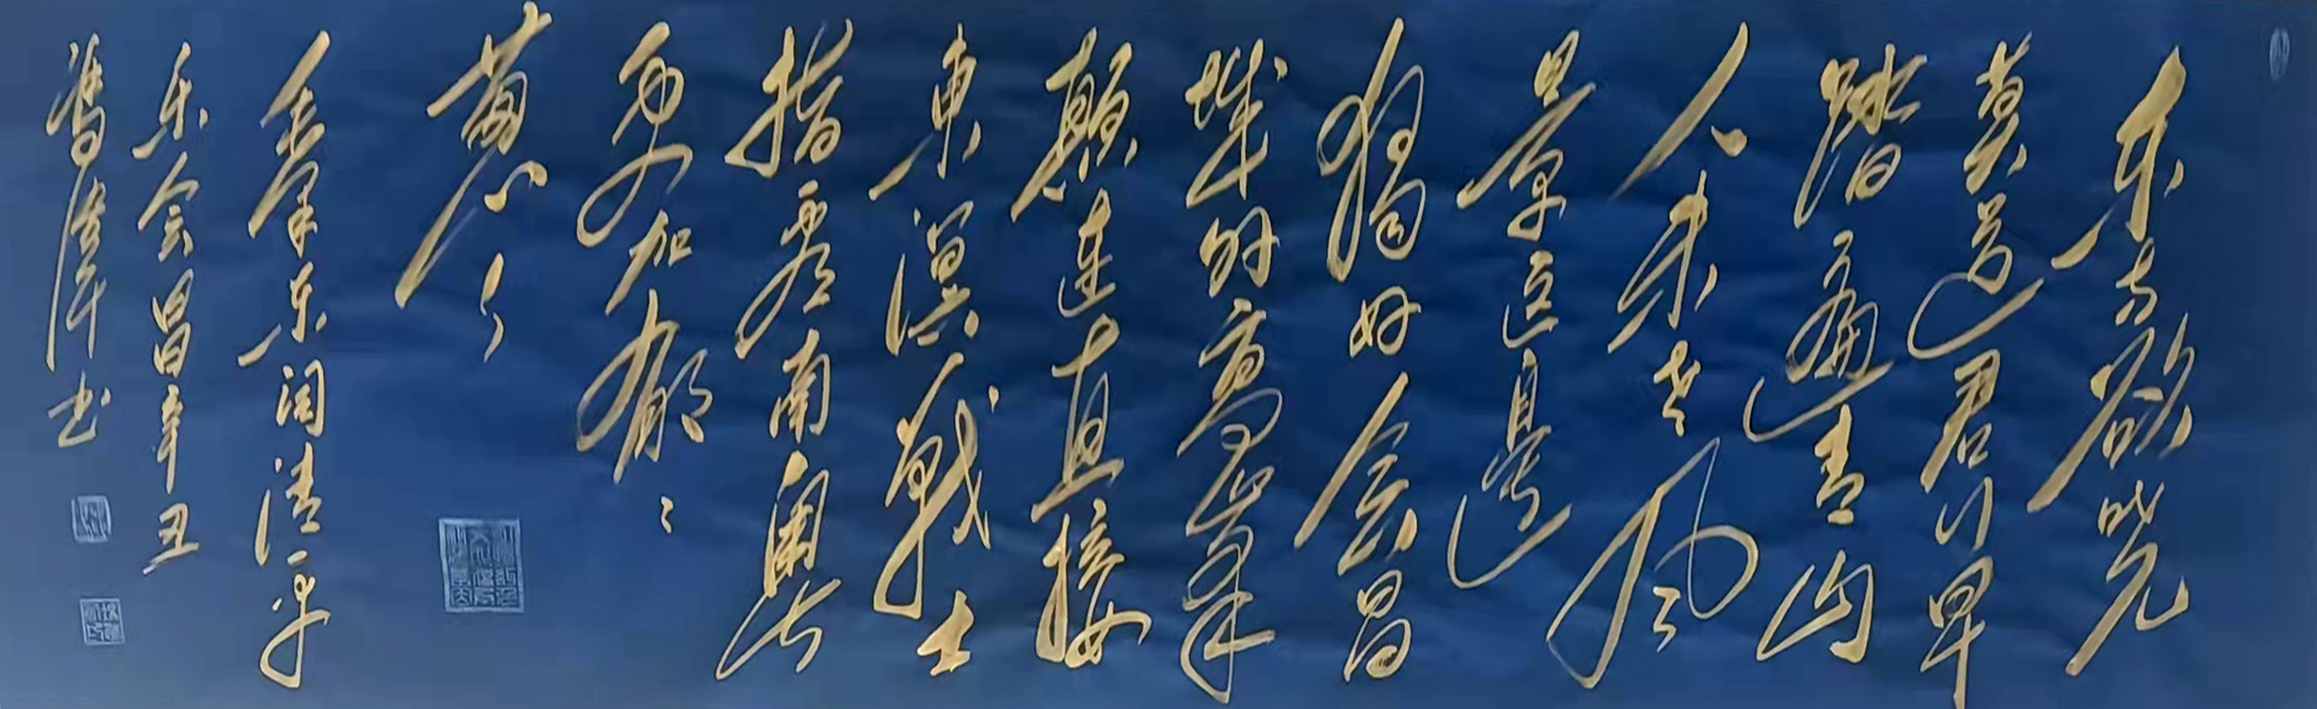 东方欲晓
莫道君行早
踏遍青山
人未老风
景這邊
獨好会昌
城外高峰
颠连直接
東溟戰士
指看南粤
更加郁々
葱々
毛泽东词清平
乐会昌辛丑
冯书